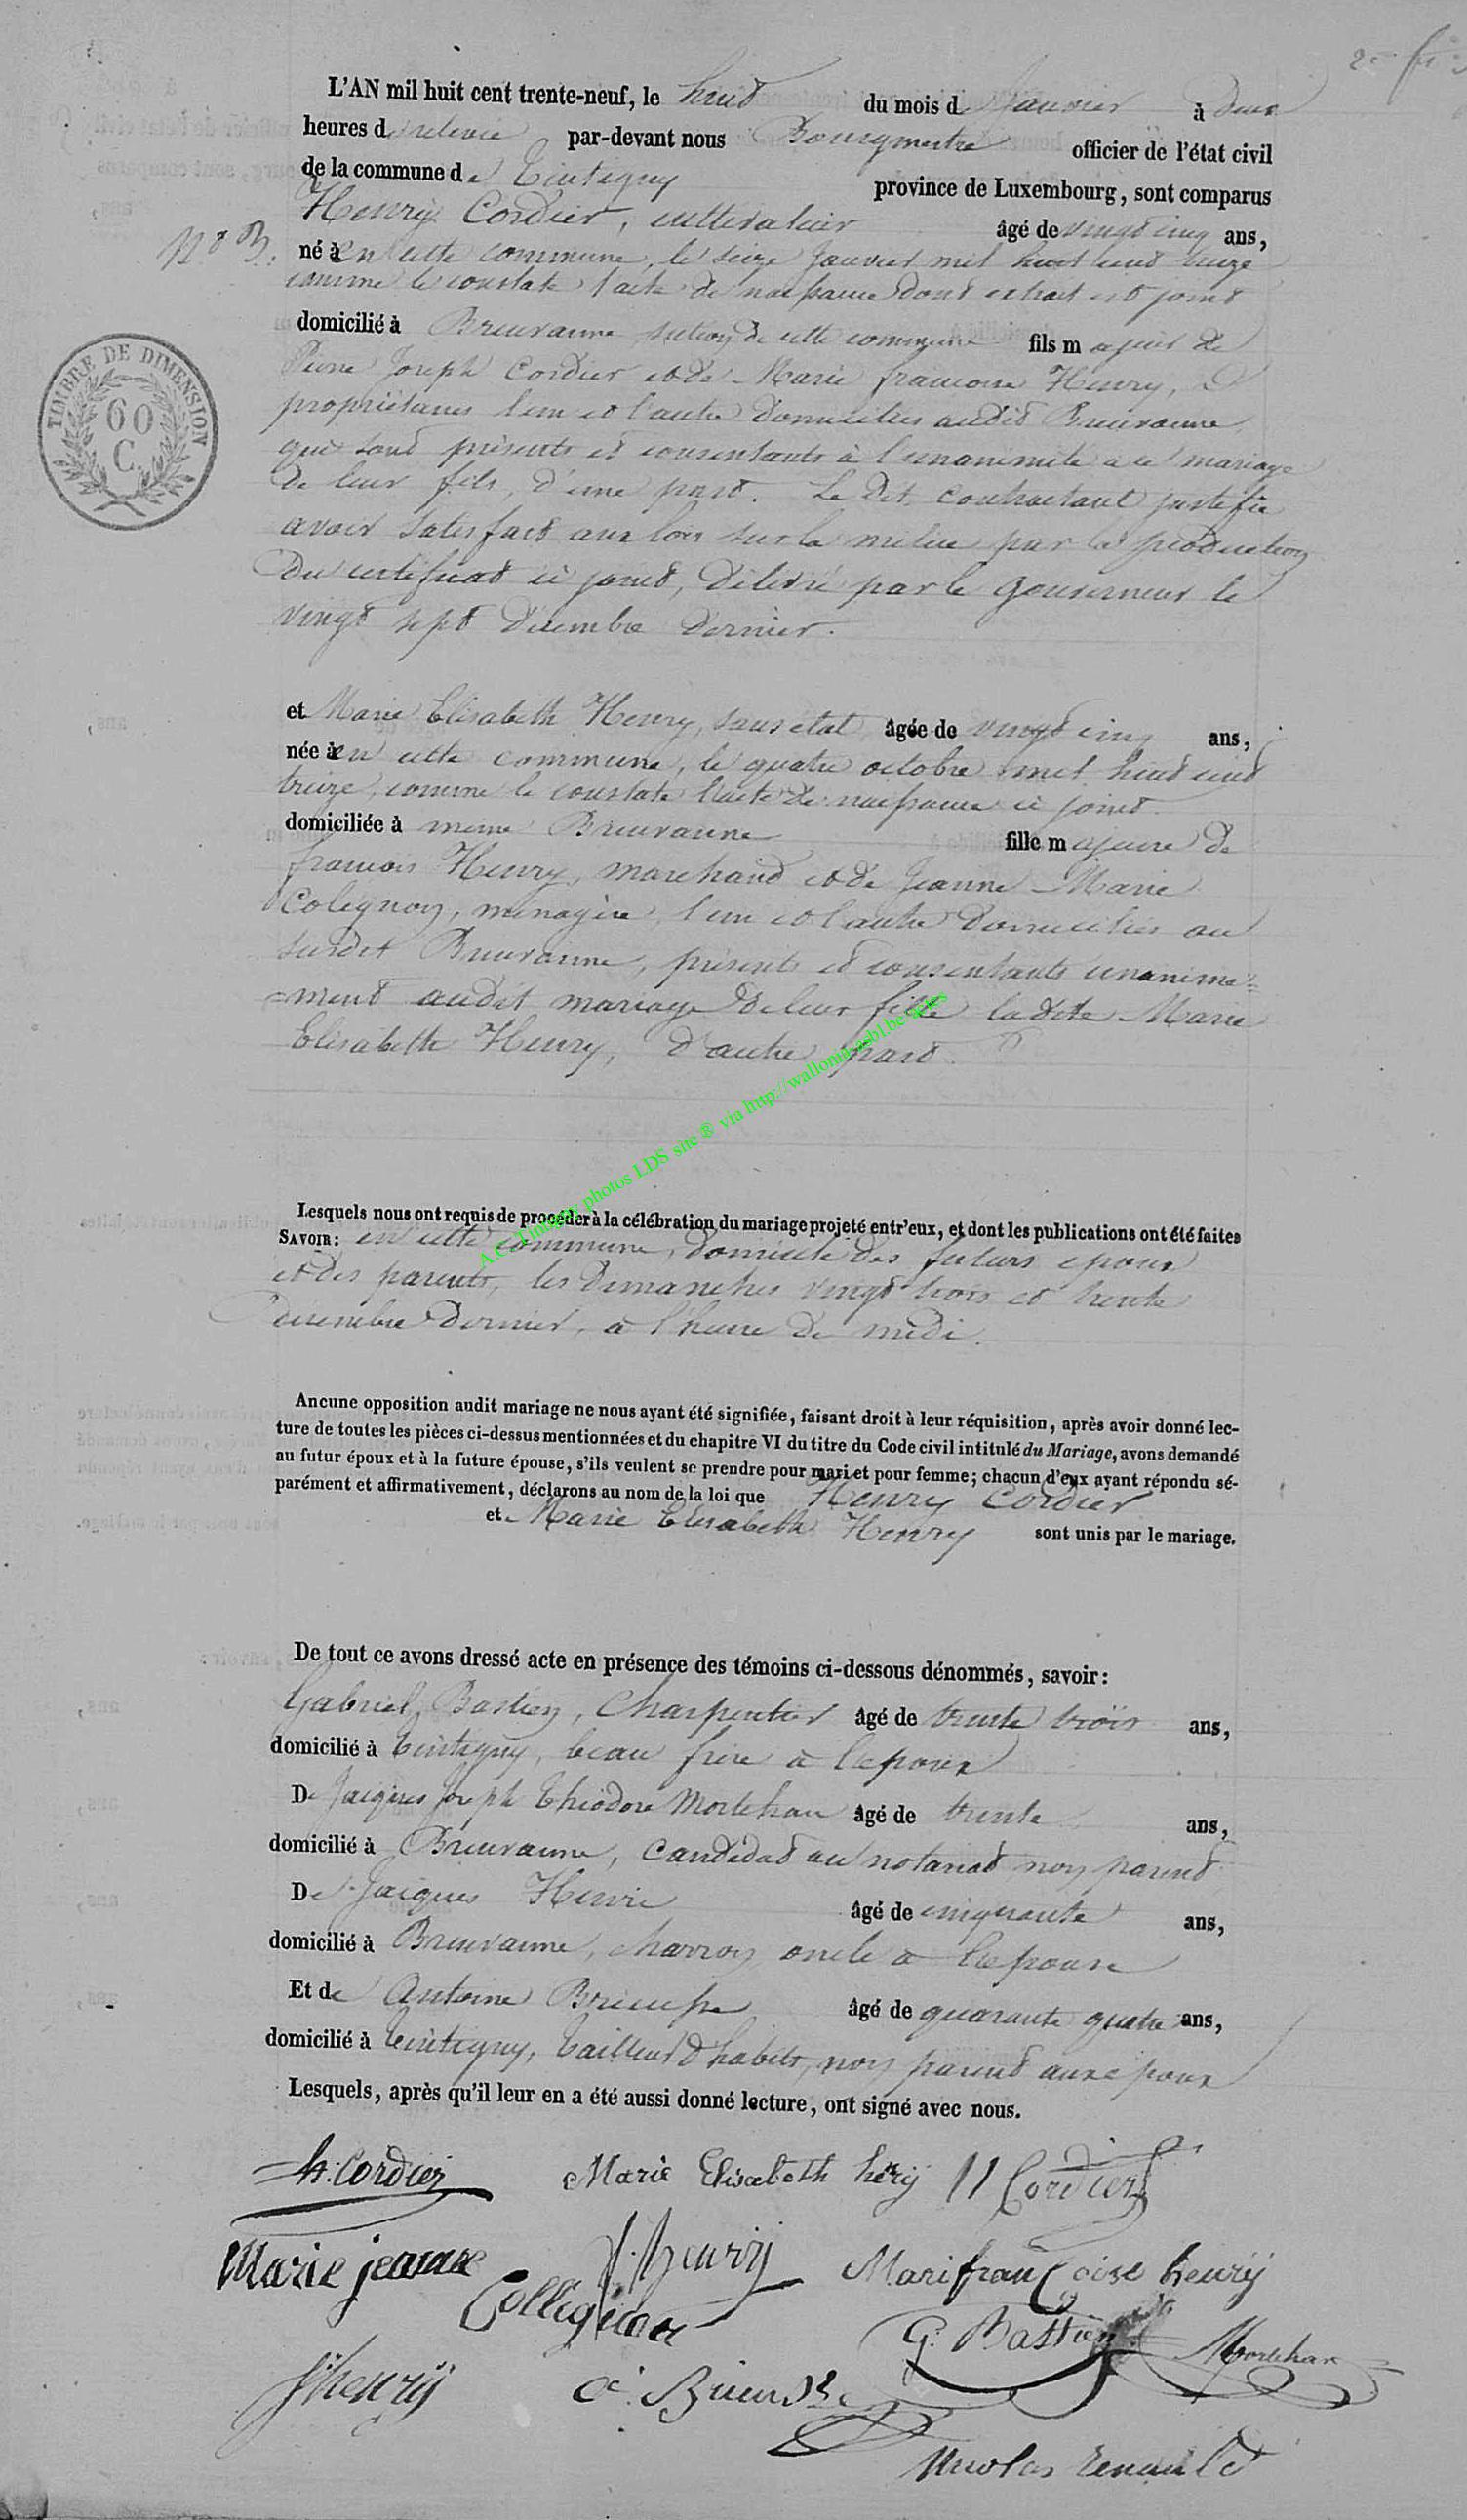 L'AN mil huit cent trente-neuf, le huit du mois de Janvier à deux
heures de relevée par-devant nous Bourgmestre officier de l'état civil
de la commune de Tintigny province de Luxembourg, sont comparus
Henry Cordier, cultivateur âgé de vingt cinq ans,
N° 3.
né à en cette commune, le seize Janvier mil huit cent treize
comme le constate l'acte de naissance dont extrait est joint
TIMBRE DE DIMENSION
60
C.
domicilié à Breuvanne section de cette commune fils majeur de
Pierre Joseph Cordier et de Marie francoise Henry,
propriétaires l'un et l'autre domiciliés audit Breuvanne,
qui sont présents et consentants à l'unanimité à ce mariage
de leur fils, d'une part. Le dit contractant justifie
avoir satisfait aux lois sur la milice par la production
du certificat ci joint, délivré par le Gouverneur le
vingt sept décembre dernier.
et Marie Elisabeth Henry, sans état âgée de vingt cinq ans,
née à en cette commune, le quatre octobre mil huit cent
treize, comme le constate l'acte de naissance ci joint
domiciliée à même Breuvanne fille majeure de
francois Henry, marchand et de Jeanne Marie
Colignon, ménagère, l'un et l'autre domiciliés au
susdit Breuvanne, présents et consentants unanime-
=ment audit mariage de leur fille ladite Marie
Elisabeth Henry, d'autre part.
A.C. Tintigny photos LDS site ® via http://wallonia-asbl.be
Lesquels nous ont requis de procéder à la célébration du mariage projeté entr'eux, et dont les publications ont été faites
SAVOIR: en cette commune, domicile des futurs epoux
et des parents, les dimanches vingt trois et trente
décembre dernier, à l'heure de midi.
Aucune opposition audit mariage ne nous ayant été signifiée, faisant droit à leur réquisition, après avoir donné lec-
ture de toutes les pièces ci-dessus mentionnées et du chapitre VI du titre du Code civil intitulé du Mariage, avons demandé
au futur époux et à la future épouse, s'ils veulent se prendre pour mari et pour femme; chacun d'eux ayant répondu sé-
parément et affirmativement, déclarons au nom de la loi que Henry Cordier
et Marie Elisabeth Henry sont unis par le mariage.
De tout ce avons dressé acte en présence des témoins ci-dessous dénommés, savoir:
Gabriel Bastien, Charpentier âgé de trente trois ans,
domicilié à Tintigny, beau frère à l'epoux
De Jacques Joseph Théodore Mortehan âgé de trente ans,
domicilié à Breuvanne, candidat au notariat non parent
De Jacques Henri âgé de cinquante ans,
domicilié à Breuvanne, charron, oncle à l'epouse
Et de Antoine Brieusse âgé de quarante quatre ans,
domicilié à Tintigny, tailleur d'habits, non parent aux epoux
Lesquels, après qu'il leur en a été aussi donné lecture, ont signé avec nous.
h. Cordier Marie Elisabeth henry Cordier
Marie jeanne Collignon f. henry Marifrançoise henry
G. Bastien Mortehan
J henry A. Brieusse
Nicolas Renauld